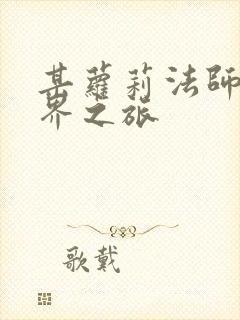 某蘿莉法師
界之旅
歌戴